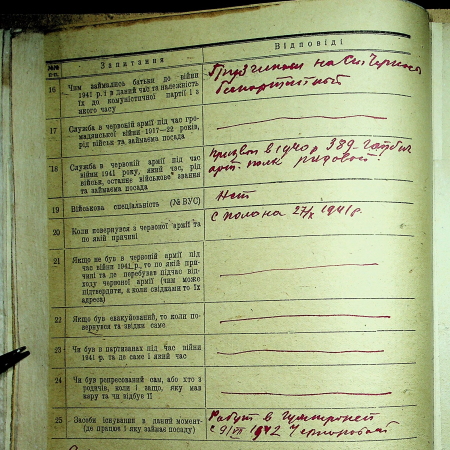 №№ п.п.
Запитання
Відповіді
16
Чим займались батьки до війни
1941 р. і в даний час та належність
їх до комуністичної партії і з
якого часу
на
17
Служба в червоній армії під час гро-
мадянської війни 1917—22 років,
рід військ та займаєма посада
18
Служба в червоній армії під час
війни 1941 року, який час, рід
військ, останнє військове звання
та займаєма посада
Призван в 1940 р 389
арт. полк рядовой
19
Військова спеціальність (№ ВУС)
Нет
20
Коли повернувся з червоної армії та
по якій причині
с полона 27/X 1941 р.
21
Якщо не був в червоній армії під
час війни 1941 р., то по якій при-
чині та де перебував підчас від-
ходу червоної армії (чим може
підтвердити, а коли свідками то їх
адреса)
22
Якщо був евакуйований, то коли по-
вернувся та звідки саме
23
Чи був в партизанах під час війни
1941 р. та де саме і який час
24
Чи був репресований сам, або хто з
родичів, коли і защо, яку мав
кару та чи відбув її
25
Засоби існування в даний момент
(де працює і яку займає посаду)
Работ в
с 9/VII 1942